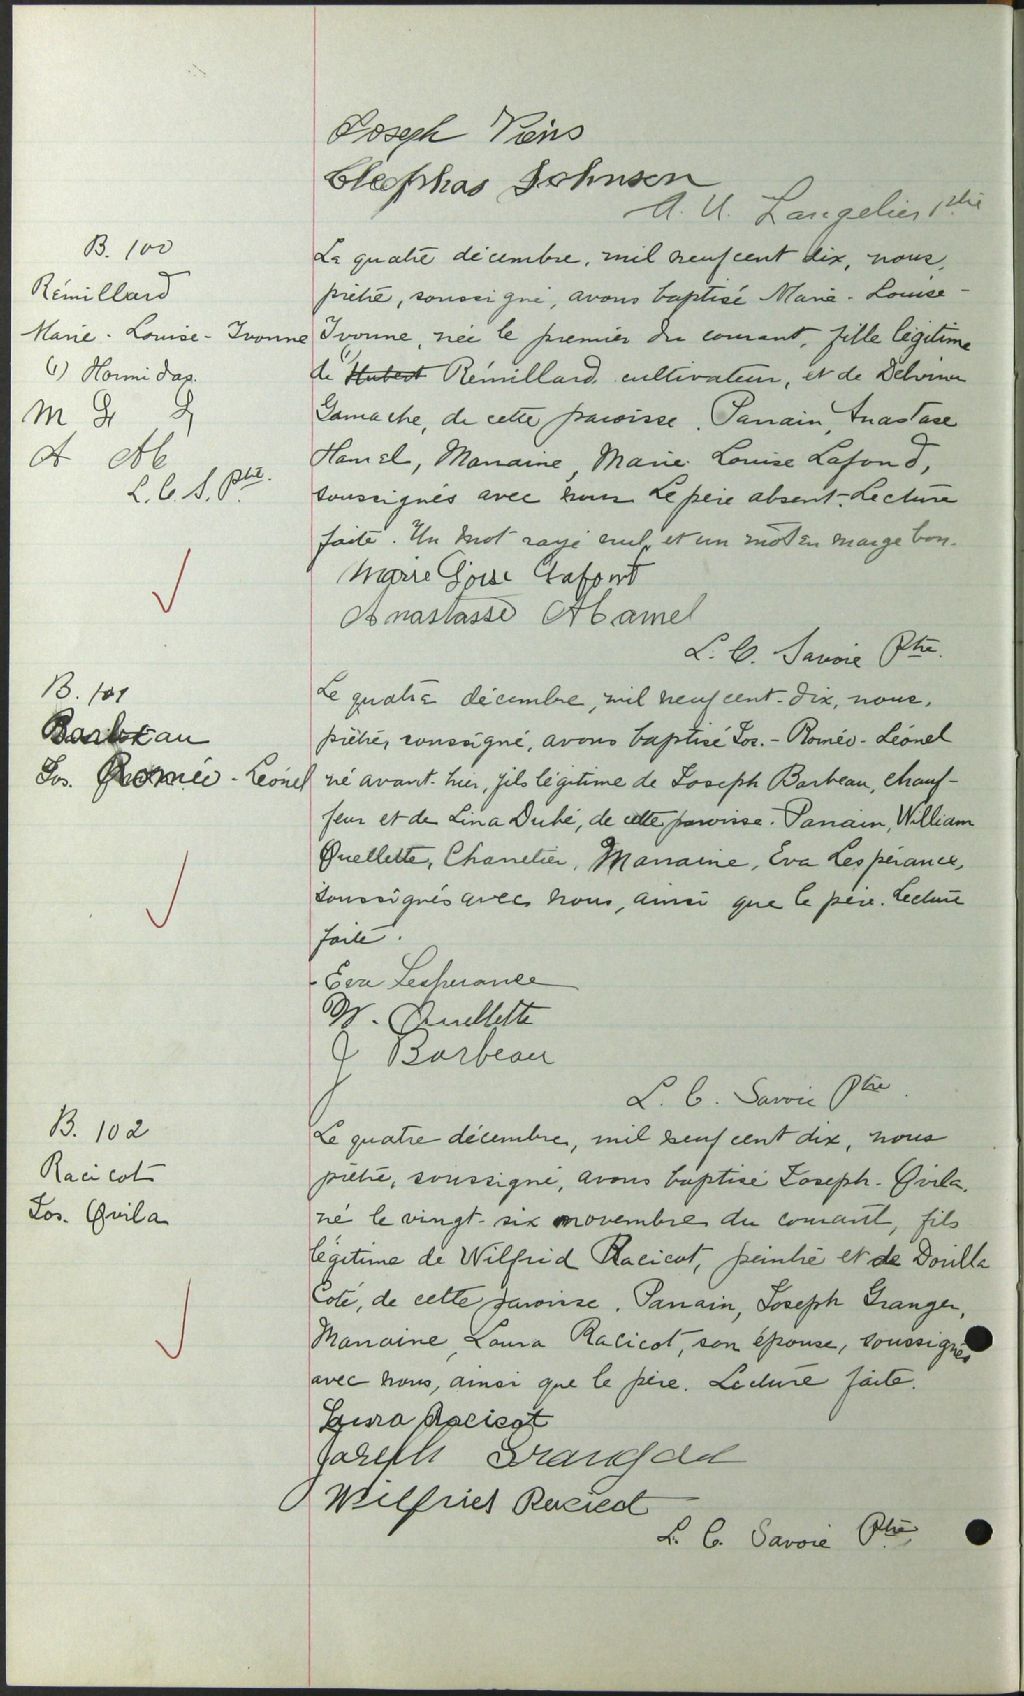 Joseph Viens
Cléophas Johnson
A. U. Langelier ptre
B. 100
Rémillard
Marie - Louise - Ivonne
(1) Hormidas.
M L L
A H
L. C. S. Ptre.
Le quatre décembre, mil neuf cent dix, nous,
prêtre, soussigné, avons baptisé Marie - Louise -
Ivonne, née le premier du courant, fille légitime
de (1) Hubert Rémillard cultivateur, et de Delvina
Gamache, de cette paroisse. Parrain, Anastase
Hamel, Marraine, Marie Louise Lafond,
soussignés avec nous Le père absent. Lecture
faite. Un mot rayé nul et un mot en marge bon.
Marie Loise Lafont
Anastasse Hamel
L. C. Savoie Ptre.
B. 101
Barbeau
Jos. Roméo - Léonel
Le quatre décembre, mil neuf cent - dix, nous,
prêtre, soussigné, avons baptisé Jos. - Roméo - Léonel
né avant - hier, fils légitime de Joseph Barbeau, chauf-
feur et de Lina Dubé, de cette paroisse. Parrain, William
Ouellette, Charretier, Marraine, Eva Lespérance,
soussignés avec nous, ainsi que le père. Lecture
faite.
Eva Lesperance
W. Ouellette
J Barbeau
L. C. Savoie Ptre.
B. 102
Racicot
Jos. Ovila
Le quatre décembre, mil neuf cent dix, nous
prêtre, soussigné, avons baptisé Joseph - Ovila,
né le vingt - six novembre du courant, fils
légitime de Wilfrid Racicot, peintre et de Dorilla
Coté, de cette paroisse. Parrain, Joseph Granger,
Marraine, Laura Racicot, son épouse, soussignés
avec nous, ainsi que le père. Lecture faite.
Laura Racicot
Joseph Granger
Wilfrid Racicot
L. C. Savoie Ptre.